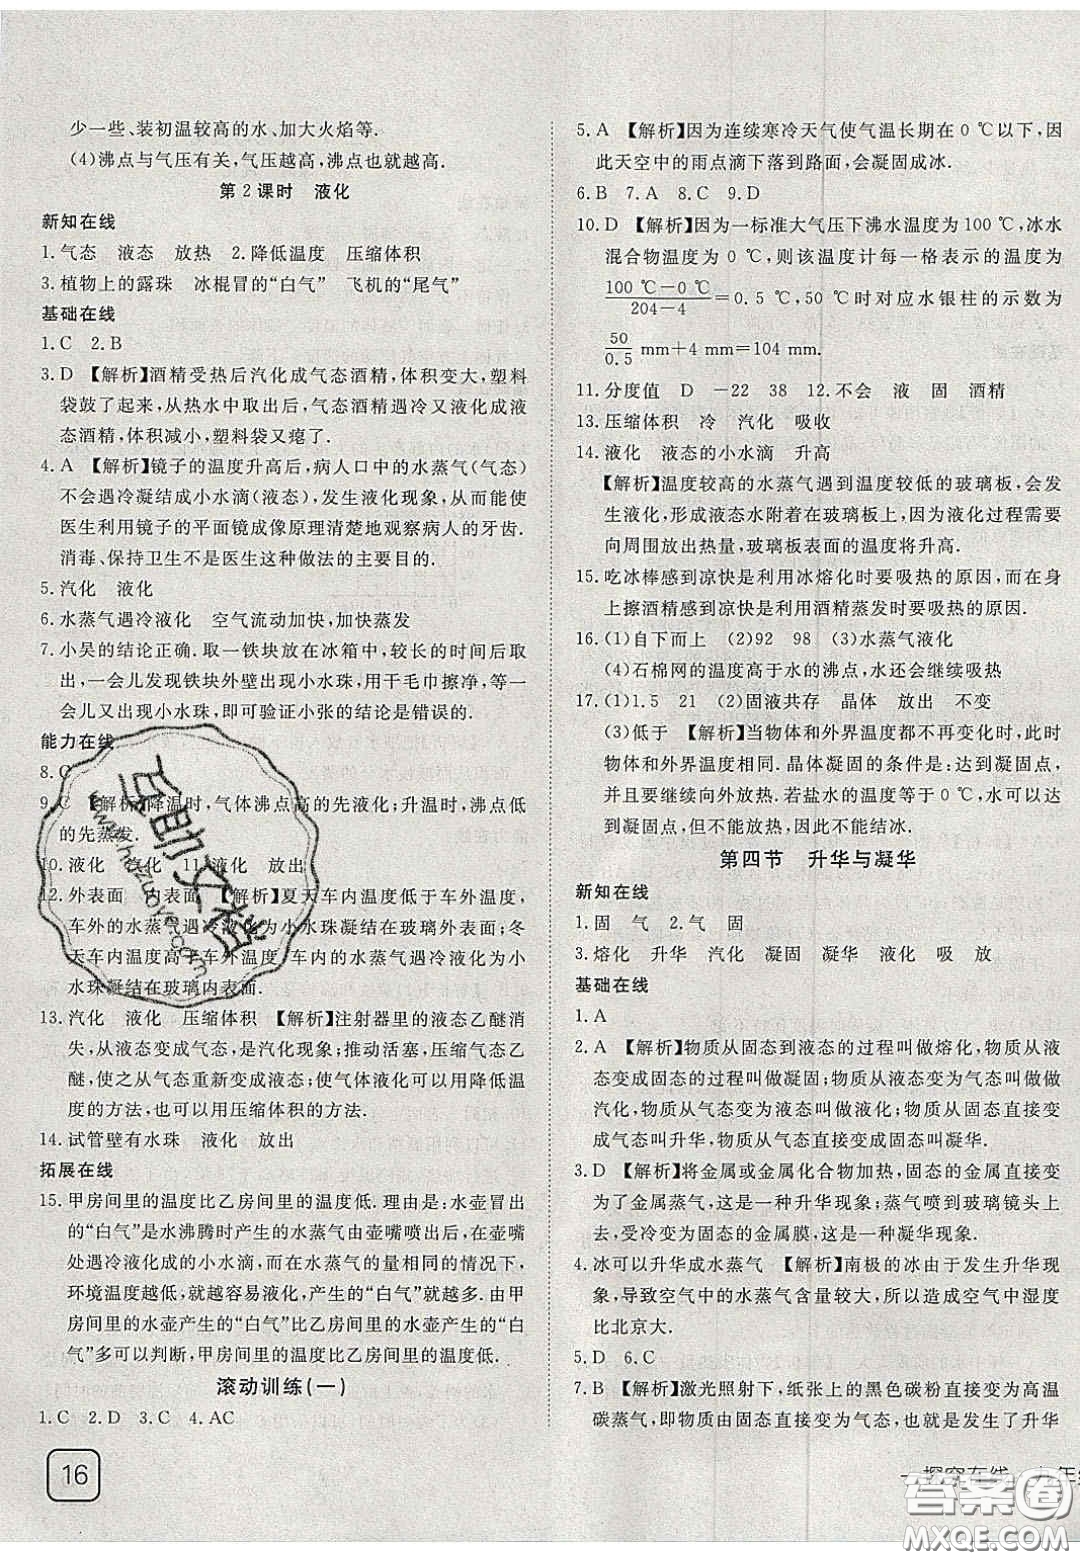 少一些、装初温较高的水、加大火焰等.
(4)沸点与气压有关,气压越高,沸点也就越高.
第2课时 液化
新知在线
1.气态 液态 放热 2.降低温度 压缩体积
3.植物上的露珠 冰棍冒的“白气” 飞机的“尾气”
基础在线
1.C 2.B
3.D 【解析】酒精受热后汽化成气态酒精,体积变大,塑料
袋鼓了起来,从热水中取出后,气态酒精遇冷又液化成液
态酒精,体积减小,塑料袋又瘪了.
4.A 【解析】镜子的温度升高后,病人口中的水蒸气(气态)
不会遇冷凝结成小水滴(液态),发生液化现象,从而能使
医生利用镜子的平面镜成像原理清楚地观察病人的牙齿.
消毒、保持卫生不是医生这种做法的主要目的.
5.汽化 液化
6.水蒸气遇冷液化 空气流动加快,加快蒸发
7.小吴的结论正确.取一铁块放在冰箱中,较长的时间后取
出,一会儿发现铁块外壁出现小水珠,用干毛巾擦净,一
会儿又出现小水珠,即可验证小张的结论是错误的.
能力在线
8.C
9.C 【解析】降温时,气体沸点高的先液化;升温时,沸点低
的先蒸发.
10.液化 汽化 11.液化 放出
12.外表面 内表面 【解析】夏天车内温度低于车外温度,
车外的水蒸气遇冷液化为小水珠凝结在玻璃外表面;冬
天车内温度高于车外温度,车内的水蒸气遇冷液化为小
水珠凝结在玻璃内表面.
13.汽化 液化 压缩体积 【解析】注射器里的液态乙醚消
失,从液态变成气态,是汽化现象;推动活塞,压缩气态乙
醚,使之从气态重新变成液态;使气体液化可以用降低温
度的方法,也可以用压缩体积的方法.
14.试管壁有水珠 液化 放出
拓展在线
15.甲房间里的温度比乙房间里的温度低.理由是:水壶冒出
的“白气”是水沸腾时产生的水蒸气由壶嘴喷出后,在壶嘴
处遇冷液化成的小水滴,而在水蒸气量相同的情况下,
环境温度越低,就越容易液化,产生的“白气”就越多.由甲
房间里的水壶产生的“白气”比乙房间里的水壶产生的“白
气”多可以判断,甲房间里的温度比乙房间里的温度低.
滚动训练(一)
1.C 2.D 3.C 4.AC
16
5.A 【解析】因为连续寒冷天气使气温长期在0 ℃以下,因
此天空中的雨点滴下落到路面,会凝固成冰.
6.B 7.A 8.C 9.D
10.D 【解析】因为一标准大气压下沸水温度为100 ℃,冰水
混合物温度为0 ℃,则该温度计每一格表示的温度为
100 ℃-0 ℃/204-4=0.5 ℃,50 ℃时对应水银柱的示数为
50/0.5 mm+4 mm=104 mm.
11.分度值 D -22 38 12.不会 液 固 酒精
13.压缩体积 冷 汽化 吸收
14.液化 液态的小水滴 升高
【解析】温度较高的水蒸气遇到温度较低的玻璃板,会发
生液化,形成液态水附着在玻璃板上,因为液化过程需要
向周围放出热量,玻璃板表面的温度将升高.
15.吃冰棒感到凉快是利用冰熔化时要吸热的原因,而在身
上擦酒精感到凉快是利用酒精蒸发时要吸热的原因.
16.(1)自下而上 (2)92 98 (3)水蒸气液化
(4)石棉网的温度高于水的沸点,水还会继续吸热
17.(1)1.5 21 (2)固液共存 晶体 放出 不变
(3)低于 【解析】当物体和外界温度都不再变化时,此时
物体和外界温度相同.晶体凝固的条件是:达到凝固点,
并要继续向外放热.若盐水的温度等于0 ℃,水可以
到凝固点,但不能放热,因此不能结冰.
第四节 升华与凝华
新知在线
1.固 气 2.气 固
3.熔化 升华 汽化 凝固 凝华 液化 吸 放
基础在线
1.A
2.A 【解析】物质从固态到液态的过程叫做熔化,物质从液
态变成固态的过程叫做凝固;物质从液态变为气态叫做
汽化;物质从气态变为液态叫做液化;物质从固态直接变
成气态叫升华,物质从气态直接变成固态叫凝华.
3.D 【解析】将金属或金属化合物加热,固态的金属直接变
为了金属蒸气,这是一种升华现象;蒸气喷到玻璃镜头上
后,受冷变为固态的金属膜,这是一种凝华现象.
4.冰可以升华成水蒸气 【解析】南极的冰由于发生升华现
象,导致空气中的水蒸气含量较大,所以造成空气中湿度
比北京大.
5.D 6.C
7.B 【解析】激光照射下,纸张上的黑色碳粉直接变为高温
碳蒸气,即碳粉由固态直接变为气态,也就是发生了升华
探究在线
答案圈
MXQE.COM
互助文档
www.huzuoye.com